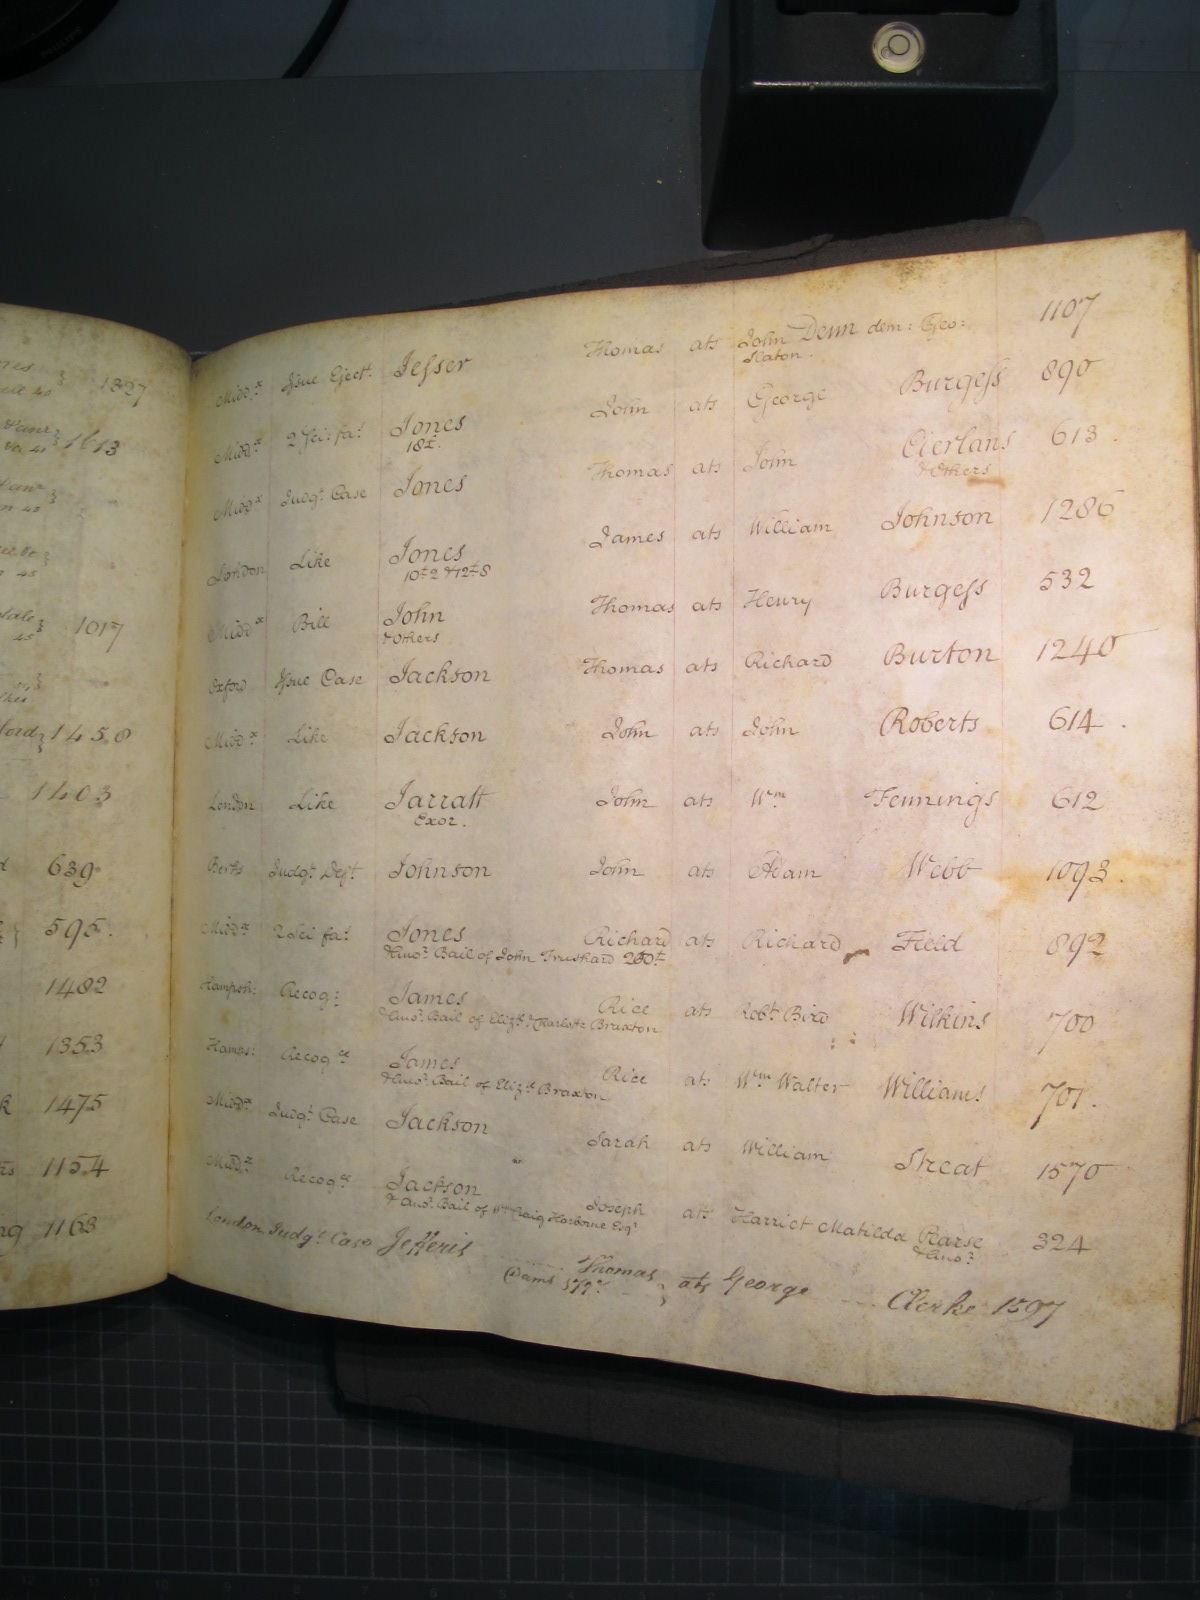 1327
1613
1017
1458
1403
639
595.
1482
1353
1475
1154
1163
Midd:x Issue Eject:t Jesser Thomas ats John Denn dem: Geo: 1107
Seaton.
Midd:x 2 Sci: fa: Jones John ats George Burgess 890
18£.
Midd:x Judg:t Case Jones Thomas ats John 613.
& Others
London Like Jones James ats William Johnson 1286
Midd:x Bill John Thomas ats Henry Burgess 532
& Others
Oxford Issue Case Jackson Thomas ats Richard Burton 1240
Midd:x Like Jackson John ats John Roberts 614.
London Like Jarratt John ats Wm Fennings 612
Exor.
Berks Judg:t Def:t Johnson John ats Adam Webb 1093.
Midd:x 2 Sci fa: Jones Richard ats Richard Field 892
& Ano:r Bail of John Trushard
Hampsh: Recog: James Rice ats Rob:t Bird Wilkins 700
& Ano:r Bail of Eliz:th Charlotte Bruxton
Hamps: Recog:ce James Rice ats Wm Walter Williams 701.
& Ano:r Bail of Eliz:th Braxton
Midd:x Judg:t Case Jackson Sarah ats William Streat 1570
Midd:x Recog:ce Jackson Joseph ats Harriet Matilda Pearse 324
& Ano:r Bail of Wm Craig Harborne Esq:r & Ano:r
London Judg:t Case Jefferis Thomas ats George Clerke 1597